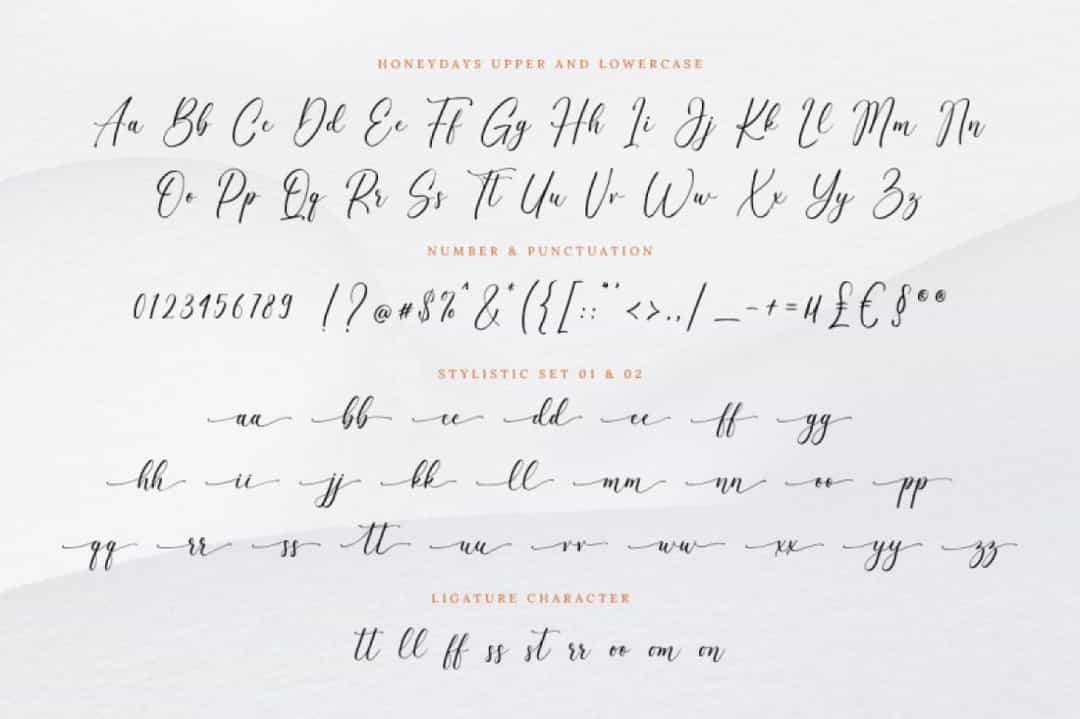 HONEYDAYS UPPER AND LOWERCASE
Aa Bb Cc Dd Ee Ff Gg Hh Ii Jj Kk Ll Mm Nn
Oo Pp Qq Rr Ss Tt Uu Vv Ww Xx Yy Zz
NUMBER & PUNCTUATION
0123456789 !?@#$%^&*({[:;"'<>.,/_-+=µ£€§®©
STYLISTIC SET 01 & 02
aa bb cc dd ee ff gg
hh ii jj kk ll mm nn oo pp
qq rr ss tt uu vv ww xx yy zz
LIGATURE CHARACTER
tt ll ff ss st rr oo om on